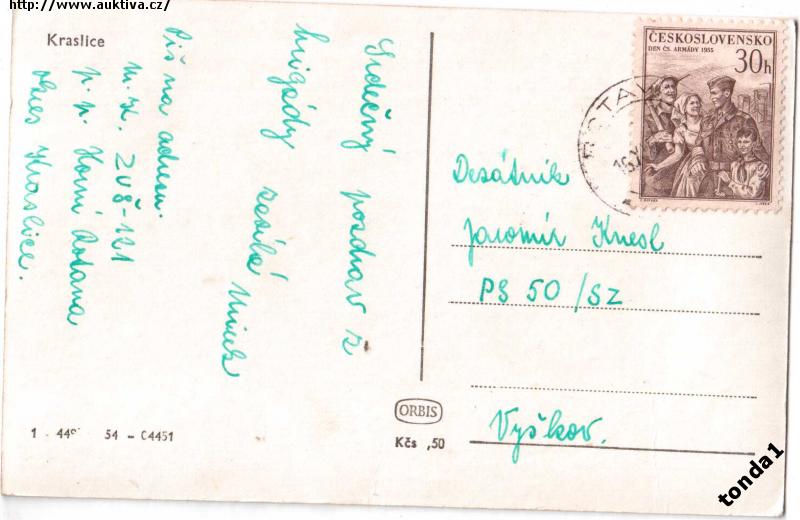 http://www.auktiva.cz/
Kraslice
Srdečný pozdrav z
brigády zasílá
Piš na adresu.
m. zl. ZVŠ-121
p. p. Horní Rotava
okres Kraslice.
1 - 449 54 - C4451
ORBIS
Kčs ,50
ČESKOSLOVENSKO
DEN ČS. ARMÁDY 1955
30h
ROTAVA
Desátník
Jaromír Knesl
PS 50/SZ
Vyškov.
tonda1